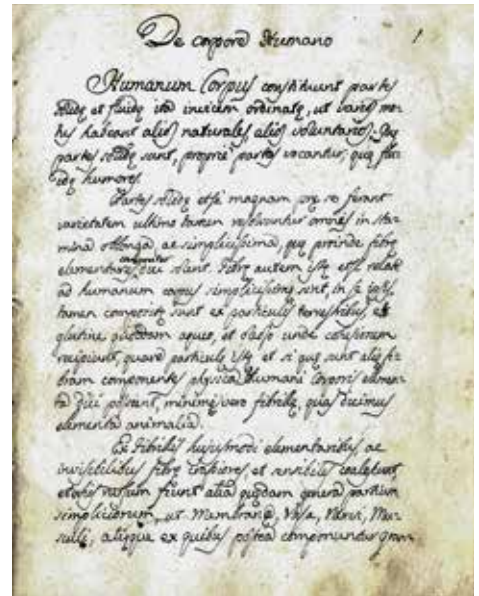 De corpore Humano 1
Humanum Corpus constituunt partes
solidę et fluidę ita invicem ordinatę, ut varios mo-
tus habeant alios naturales, alios voluntarios. Quę
partes solidę sunt, propriè partes vocantur; quę flu-
idę humores.
Partes solidę etsi magnam prę se ferant
varietatem ultimo tamen resolvuntur omnes in sta-
mina oblonga, ac simplicissima, quę proinde fibrę
elementares dici solent. Fibrę autem istę etsi relatè
ad humanum corpus simplicissimę sint, in se ipsis
tamen compositę sunt ex particulis terrestribus, et
glutine quodam aqueo, et oleoso unde cohęsionem
recipiunt, quare particulę istę et si quę sunt alię fi-
bram componentes physica Humani Corporis elemen-
ta dici possunt, minimę vero fibrillę, quas dicimus
elementa animalia.
Ex fibrillis hujusmodi elementaribus, ac
invisibilibus fibrę crassiores, et sensibiles coalescunt,
et ex his rursum fiunt alia quędam genera partium
simpliciorum, ut Membranę, Vasa, Nervi, Mus-
culi, aliąque ex quibus postea componuntur